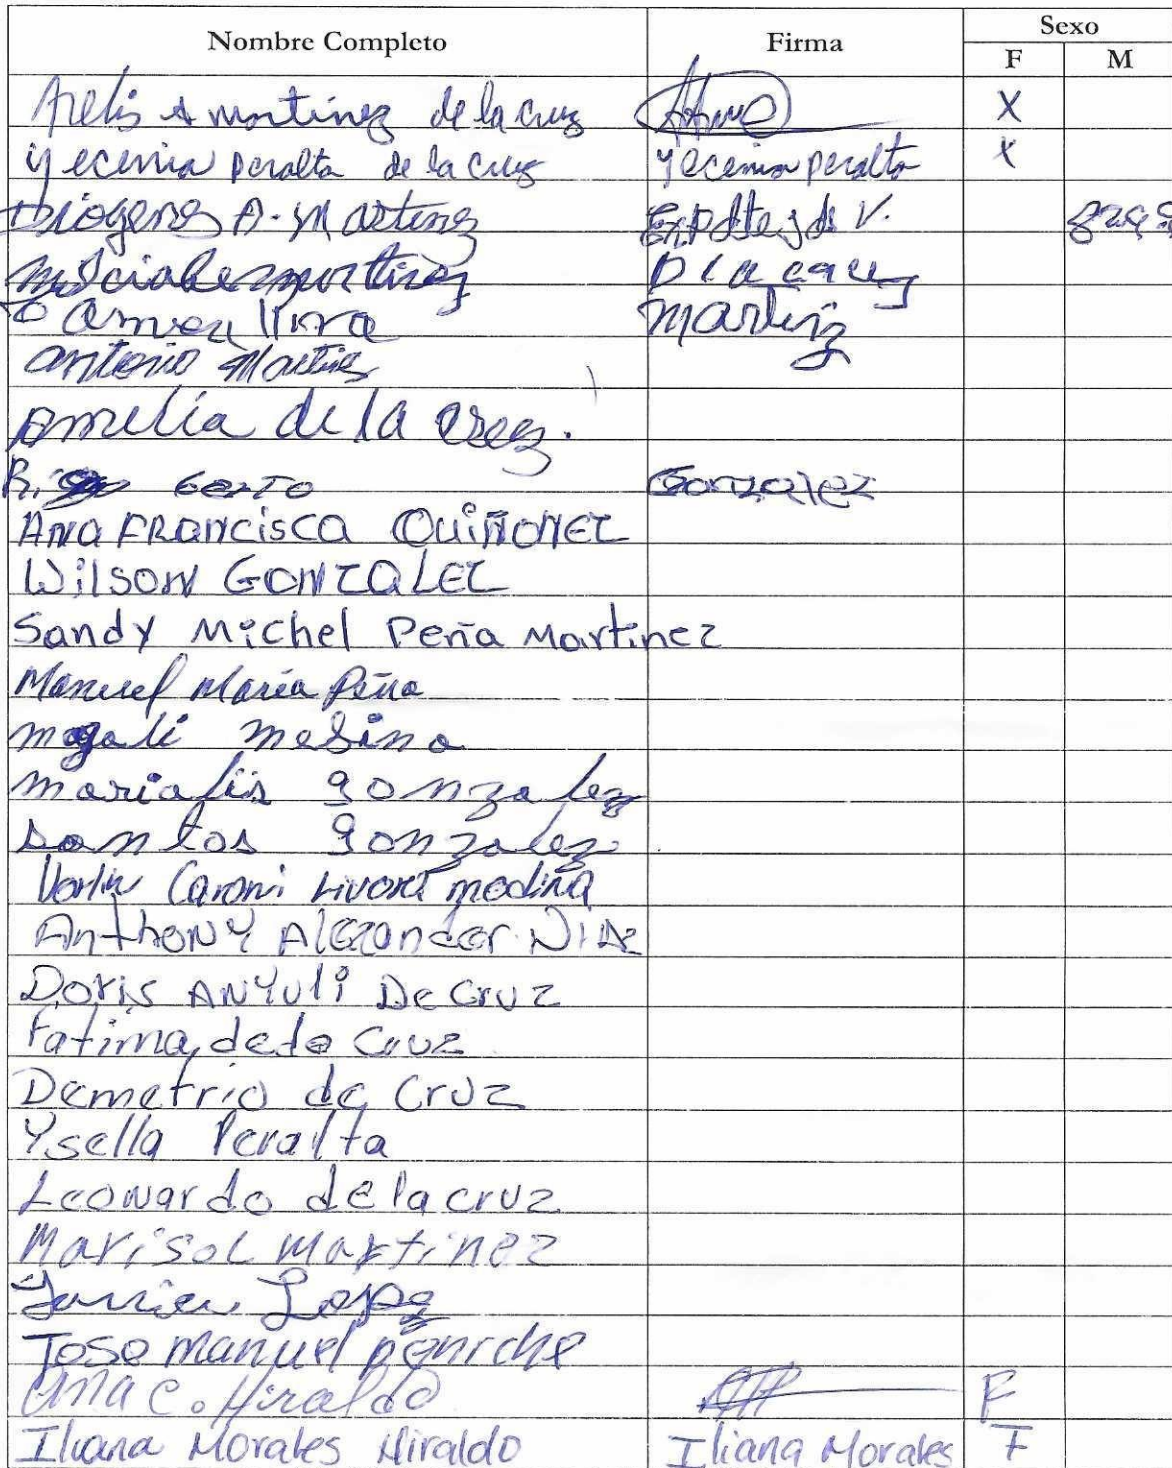 Nombre Completo Firma Sexo
F M
Arelis A martinez de la cruz X
yecenia peralta de la cruz yecenia peralta X
Diogenes A. Martinez
martinez
martinez
antonio Martinez
Amelia de la Cruz.
Gonzalez
Ana FRANCISCA QuiÑONEZ
Wilson GONZALEZ
Sandy Michel Peña Martinez
Manuel Maria Peña
magali mesina
marialis gonzalez
santos gonzalez
Caroni medina
AnthoNY Alexander
Doris ANYuli De Cruz
Fatima de la Cruz
Demetrio de Cruz
Ysella Peralta
Leonardo de la cruz
Marisol Martinez
Lopez
Jose manuel
ana C. Hiraldo F
Iliana Morales Hiraldo Iliana Morales F